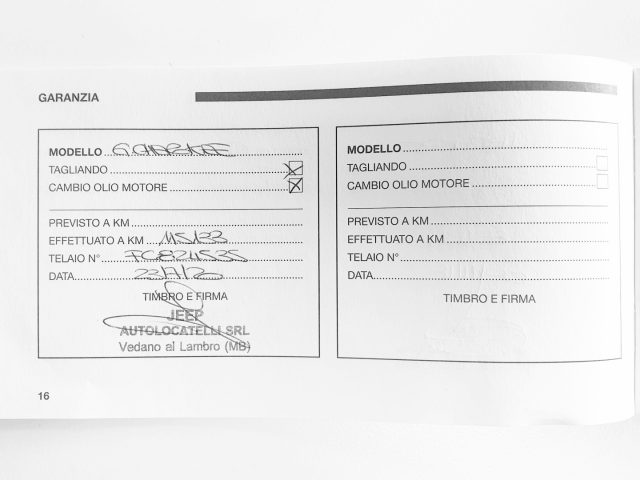 GARANZIA
MODELLO G. CHEROKEE
TAGLIANDO
CAMBIO OLIO MOTORE
PREVISTO A KM
EFFETTUATO A KM
TELAIO N°
DATA
TIMBRO E FIRMA
JEEP
AUTOLOCATELLI SRL
Vedano al Lambro (MB)
MODELLO
TAGLIANDO
CAMBIO OLIO MOTORE
PREVISTO A KM
EFFETTUATO A KM
TELAIO N°
DATA
TIMBRO E FIRMA
16